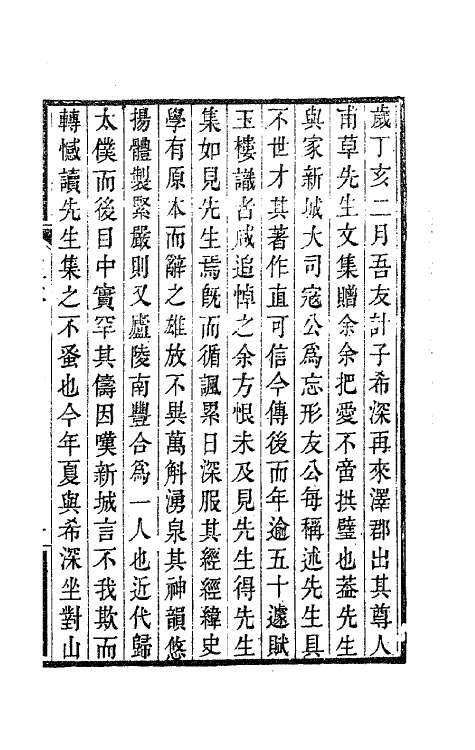 歲丁亥二月吾友計子希深再來澤郡出其尊人
甫草先生文集贈余余把愛不啻拱璧也葢先生
與家新城大司寇公爲忘形友公每稱述先生具
不世才其著作直可信今傳後而年逾五十遽賦
玉樓識者咸追悼之余方恨未及見先生得先生
集如見先生焉旣而循諷累日深服其經經緯史
學有原本而辭之雄放不異萬斛湧泉其神韻悠
揚體製緊嚴則又廬陵南豐合爲一人也近代歸
太僕而後目中實罕其儔因嘆新城言不我欺而
轉憾讀先生集之不蚤也今年夏與希深坐對山